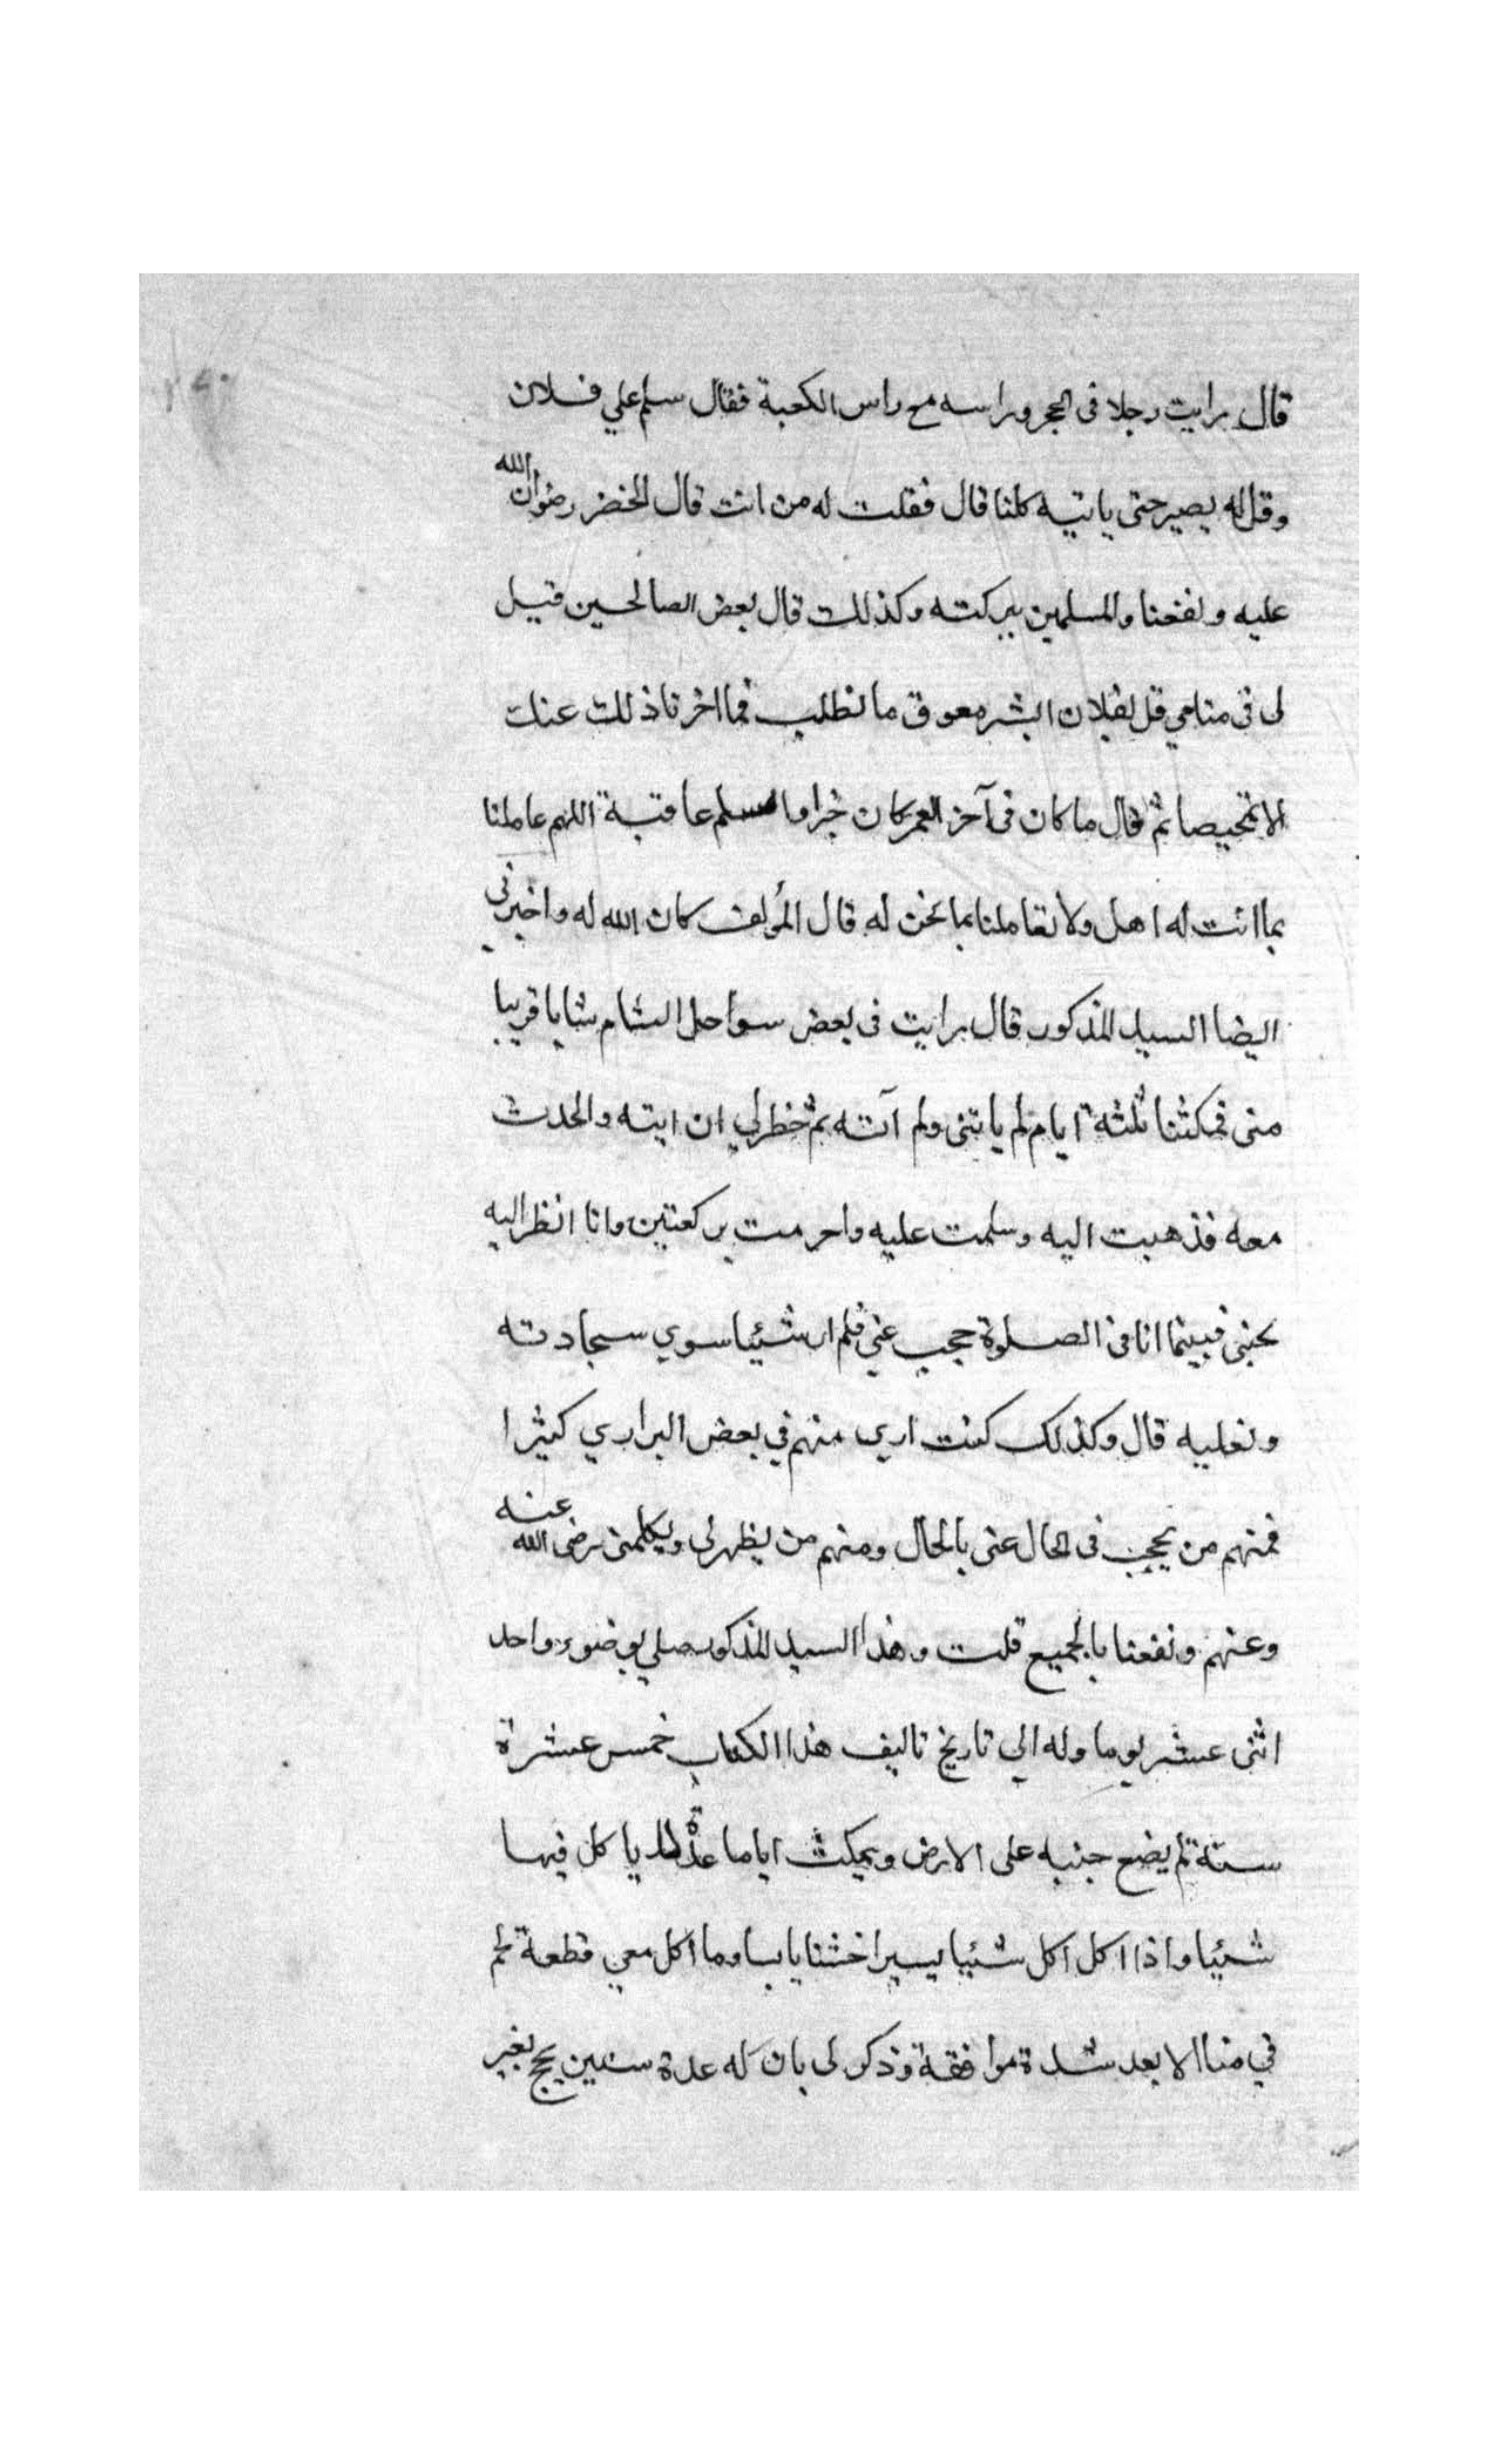 قال رايت رجلا فى الحجر وراسه مع راس الكعبة فقال سلم علي فلان
وقل له يصبر حتى ياتيه كلنا قال فقلت له من انت قال الخضر رضوان الله
عليه ونفعنا والمسلمين ببركته وكذلك قال بعض الصالحين قيل
لى فى منامي قل لفلان ابشر معوق ما تطلب فما اخرنا ذلك عنك
الا تمحيصا ثم قال ما كان فى آخر العمر كان خيرا واسلم عاقبة اللهم عاملنا
بما انت له اهل ولا تعاملنا بما نحن له قال المؤلف كان الله له واخبرني
ايضا السيد المذكور قال رايت فى بعض سواحل الشام شابا قريبا
منى فمكثنا ثلثة ايام لم ياتنى ولم آته ثم خطر لي ان اتيه واتحدث
معه فذهبت اليه وسلمت عليه واحرمت بركعتين وانا انظر اليه
بجنبى فبينما انا فى الصلوة حجب عني فلم ار شيئا سوي سجادته
ونعليه قال وكذلك كنت اري منهم في بعض البراري كثيرا
فمنهم من يحجب فى الحال عنى بالحال ومنهم من يظهر لى ويكلمنى رضى الله عنه
وعنهم ونفعنا بالجميع قلت وهذا السيد المذكور صلي بوضوء واحد
اثنى عشر يوما وله الي تاريخ تاليف هذا الكتاب خمس عشرة
سنة لم يضع جنبه على الارض ويمكث اياما عدة لا ياكل فيها
شيئا واذا اكل اكل شيئا يسيرا خشنا يابسا وما اكل معي قطعة لحم
في منا الا بعد شدة موافقة وذكر لى بان له عدة سنين يحج بغير